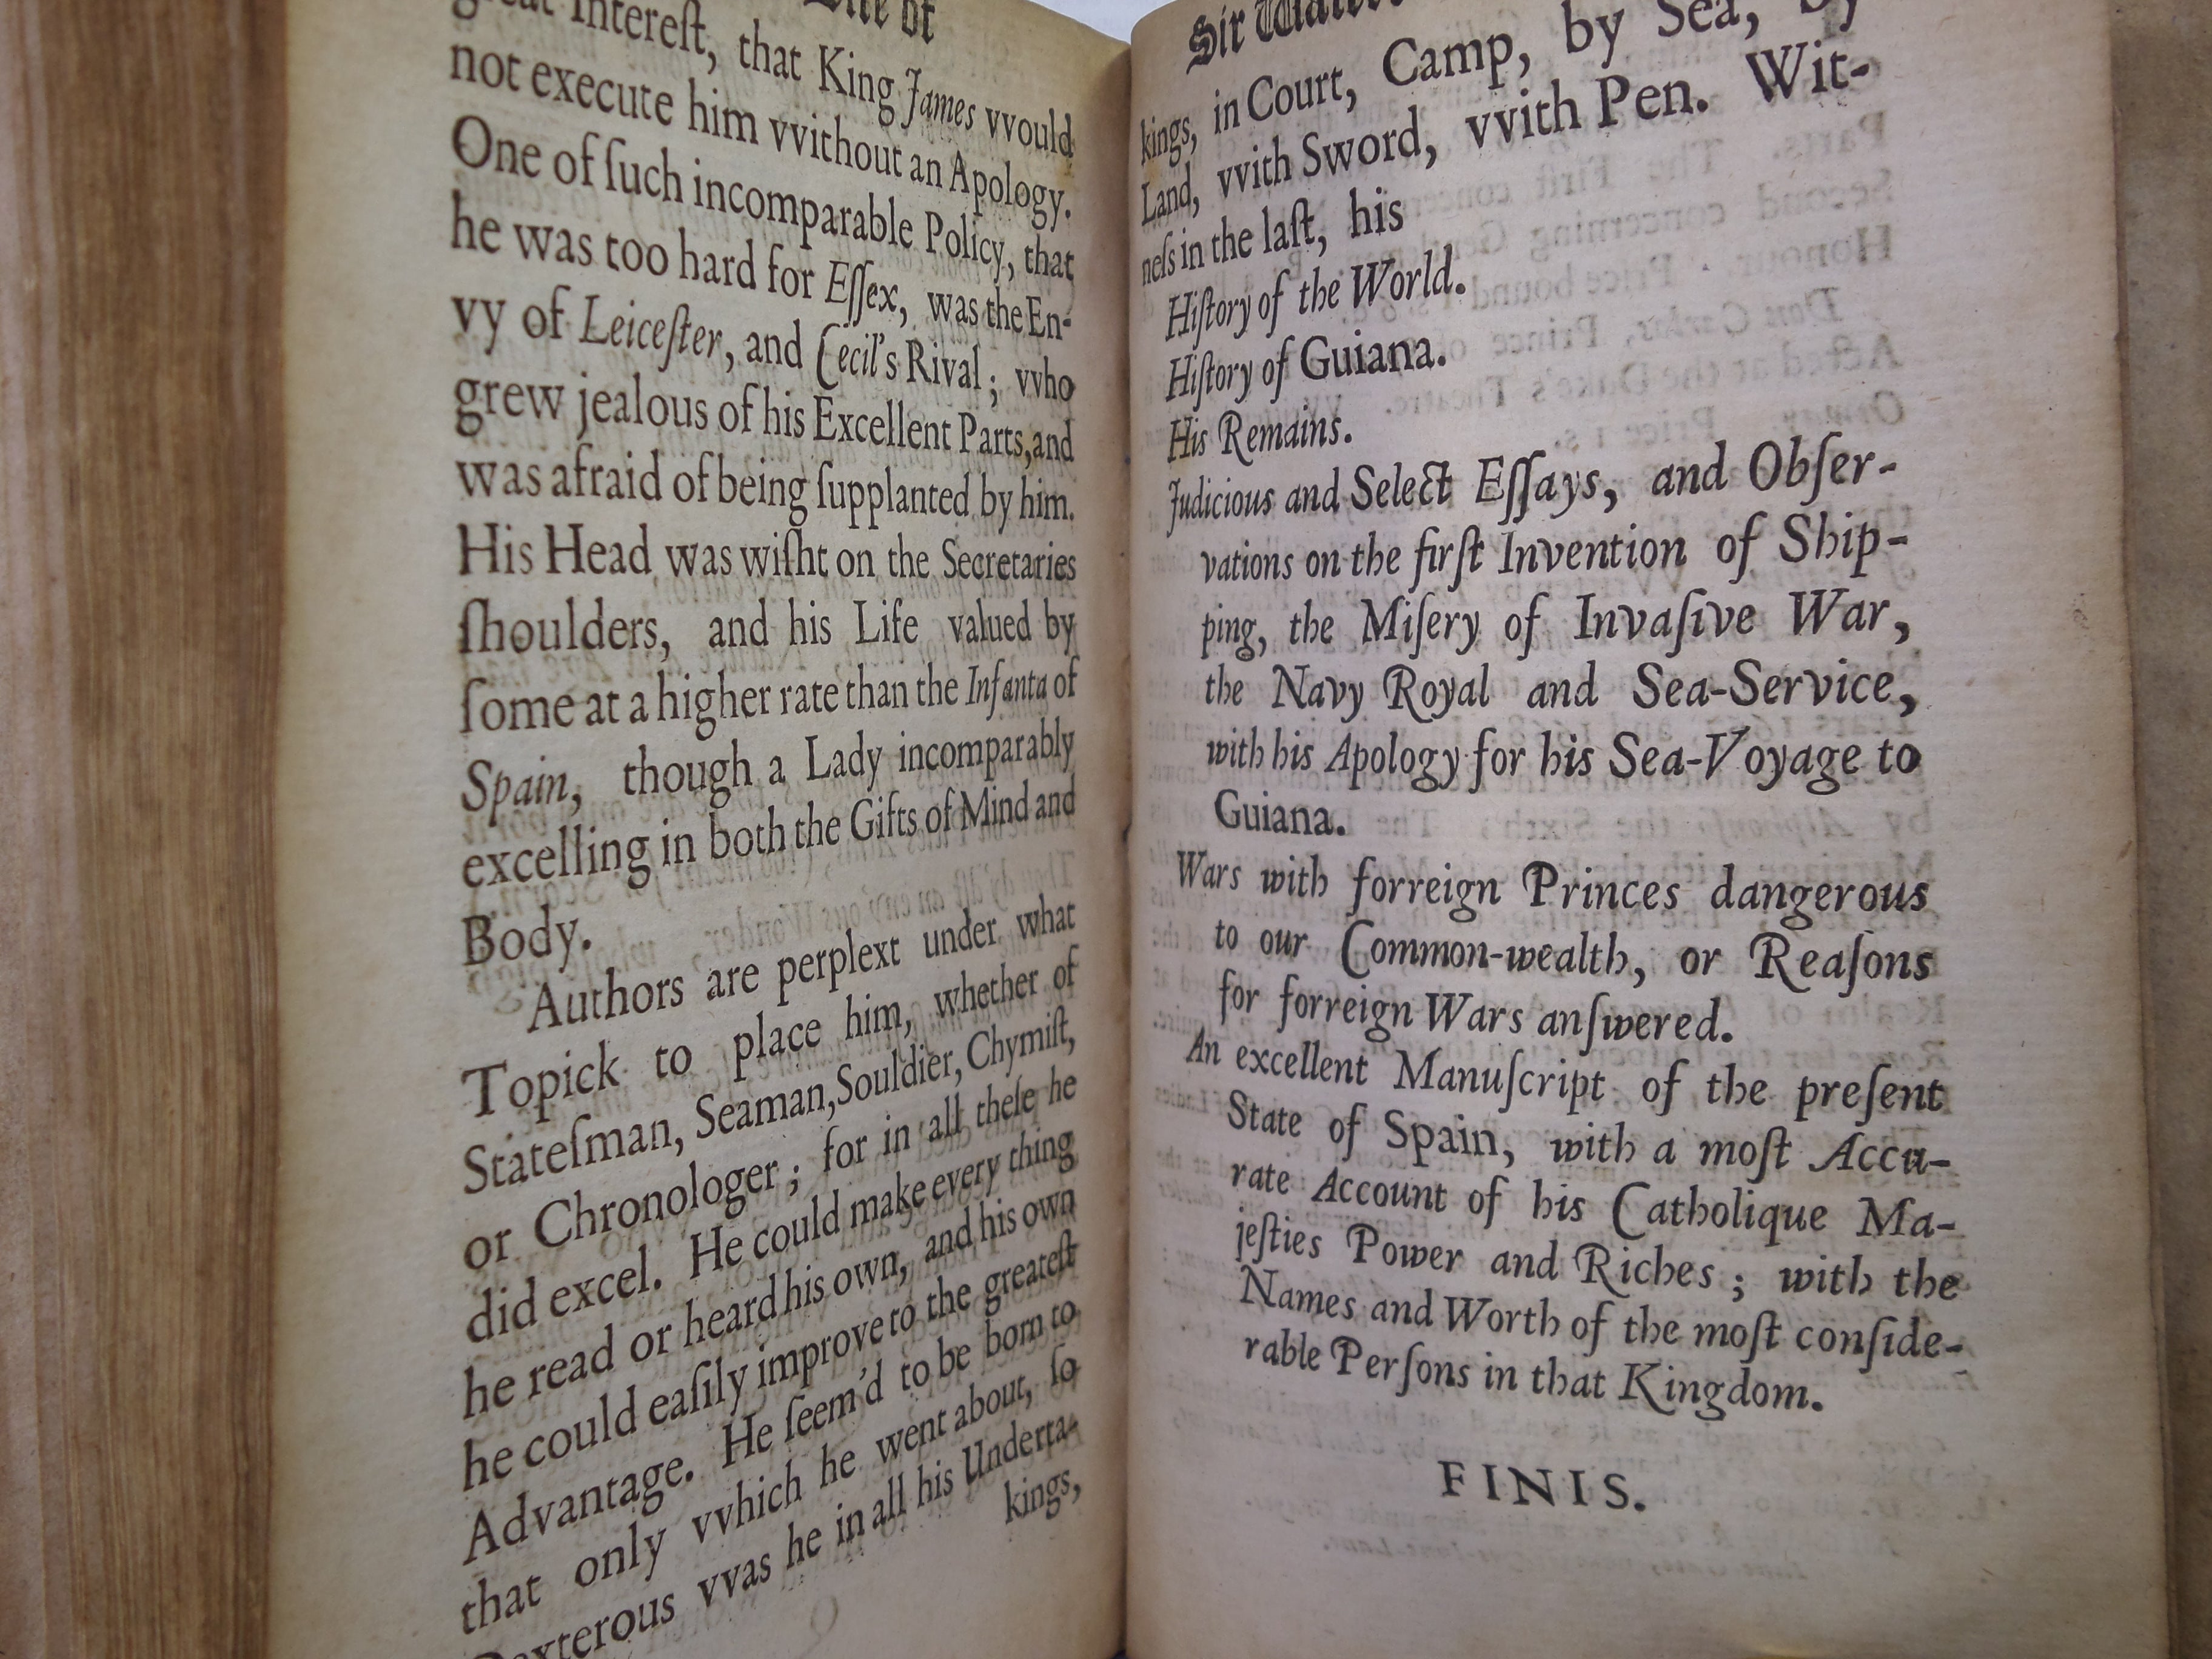 Life of
great Intereſt, that King James vvould
not execute him vvithout an Apology.
One of ſuch incomparable Policy, that
he was too hard for Eſſex, was the En-
vy of Leiceſter, and Cecil's Rival; vvho
grew jealous of his Excellent Parts, and
was afraid of being ſupplanted by him.
His Head was wiſht on the Secretaries
ſhoulders, and his Life valued by
ſome at a higher rate than the Infanta of
Spain, though a Lady incomparably
excelling in both the Gifts of Mind and
Body.
Authors are perplext under what
Topick to place him, whether of
Stateſman, Seaman, Souldier, Chymiſt,
or Chronologer; for in all theſe he
did excel. He could make every thing
he read or heard his own, and his own
he could eaſily improve to the greateſt
Advantage. He ſeem'd to be born to
that only vvhich he went about, ſo
Dexterous vvas he in all his Underta-
kings,
Sir
kings, in Court, Camp, by Sea, by
Land, vvith Sword, vvith Pen. Wit-
neſs in the laſt, his
Hiſtory of the World.
Hiſtory of Guiana.
His Remains.
Judicious and Select Eſſays, and Obſer-
vations on the firſt Invention of Ship-
ping, the Miſery of Invaſive War,
the Navy Royal and Sea-Service,
with his Apology for his Sea-Voyage to
Guiana.
Wars with forreign Princes dangerous
to our Common-wealth, or Reaſons
for forreign Wars anſwered.
An excellent Manuſcript of the preſent
State of Spain, with a moſt Accu-
rate Account of his Catholique Ma-
jeſties Power and Riches; with the
Names and Worth of the moſt conſide-
rable Perſons in that Kingdom.
FINIS.